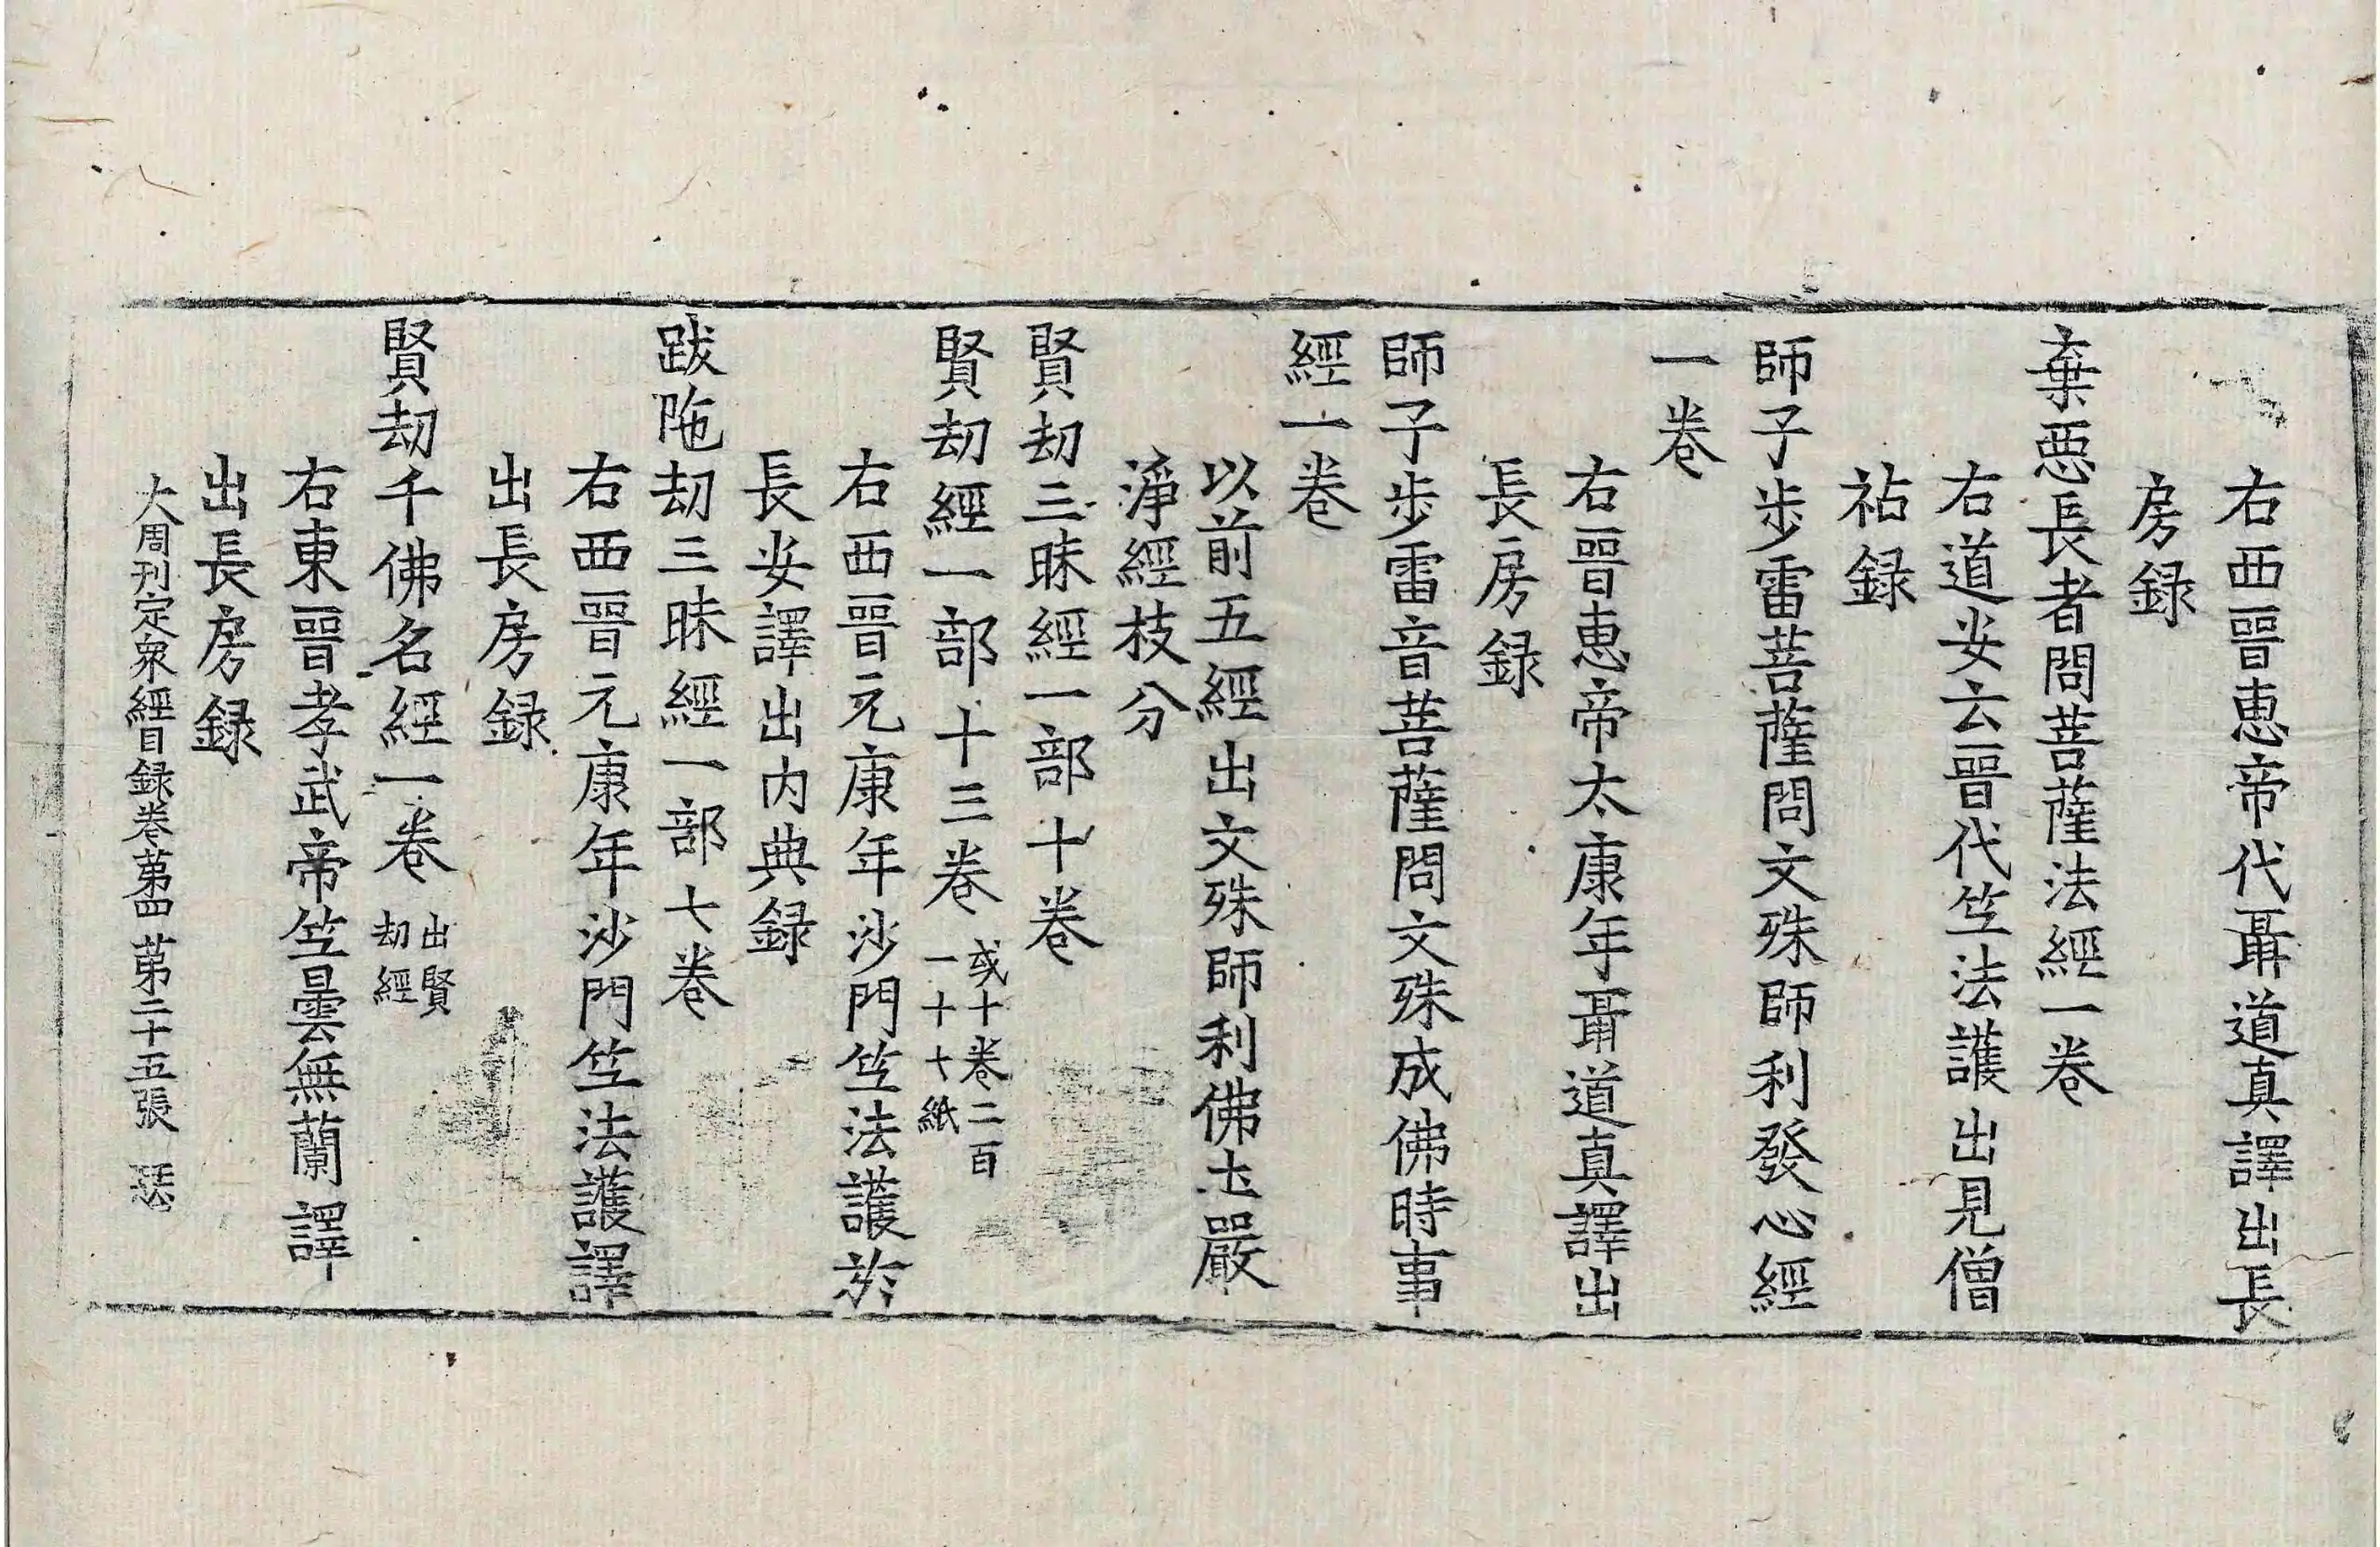 右西晉惠帝代聶道真譯出長
房録
棄惡長者問菩薩法經一卷
右道安云晉代竺法護出見僧
祐録
師子步雷菩薩問文殊師利發心經
一卷
右晉惠帝太康年聶道真譯出
長房録
師子步雷音菩薩問文殊成佛時事
經一卷
以前五經出文殊師利佛土嚴
淨經枝分
賢劫三昧經一部十卷
賢劫經一部十三卷
或十卷二百
一十七紙
右西晉元康年沙門竺法護於
長安譯出内典録
跋陁劫三昧經一部七卷
右西晉元康年沙門竺法護譯
出長房録
賢劫千佛名經一卷
出賢
劫經
右東晉孝武帝竺曇無蘭譯
出長房録
大周刊定衆經目録卷第四 第二十五張